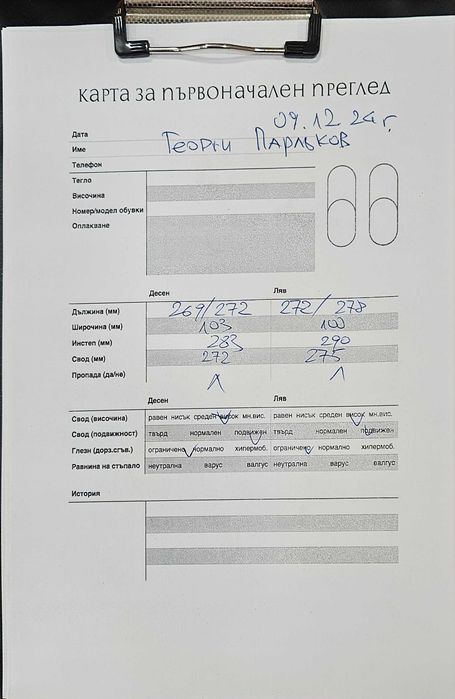 КАРТА ЗА ПЪРВОНАЧАЛЕН ПРЕГЛЕД
Дата 09.12.24 г.
Име Георги Парлъков
Телефон
Тегло
Височина
Номер/модел обувки
Оплакване
Десен Ляв
Дължина (мм) 269/272 272/278
Широчина (мм) 103 100
Инстеп (мм) 283 290
Свод (мм) 272 275
Пропада (да/не)
Десен Ляв
Свод (височина) равен нисък среден висок мн.вис. равен нисък среден висок мн.вис.
Свод (подвижност) твърд нормален подвижен твърд нормален подвижен
Глезн (дорз.сгъв.) ограничено нормално хипермоб. ограничено нормално хипермоб.
Равнина на стъпало неутрална варус валгус неутрална варус валгус
История